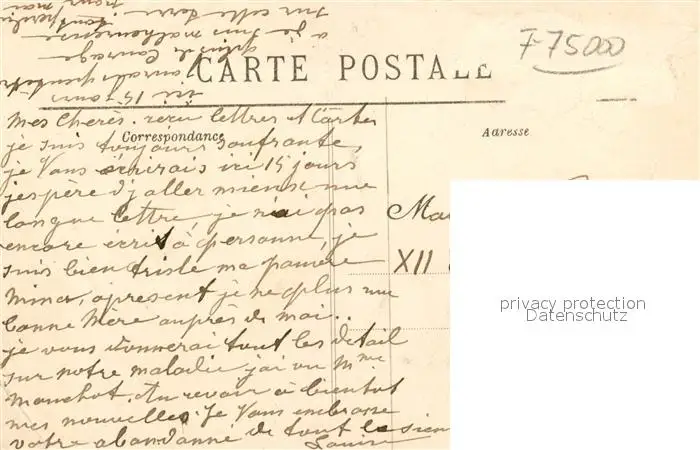 F 75000
CARTE POSTALE
Correspondance
Adresse
Mes Cherès. reçu lettres et Cartes
je suis toujours soufrante,
je Vous écrirais ici 15 jours
jespère d'j aller mieux une
longue lettre, je n'ai pas
encore écrit à personne, je
suis bien triste ma pauvre
Mimer, apresent je ne plus une
bonne Mère auprès de moi..
je vous donnerai tout les detail
sur notre maladie j'ai vu Mme
Manchot. Au revoir à bientot
mes nouvelles. Je Vous embrasse
votre abandonné de tout le sien
Louise
ici 15 jours
aurais peutetre
plus de Courage
a je suis malheureuse
sur cette terre
Ma
XII
privacy protection
Datenschutz